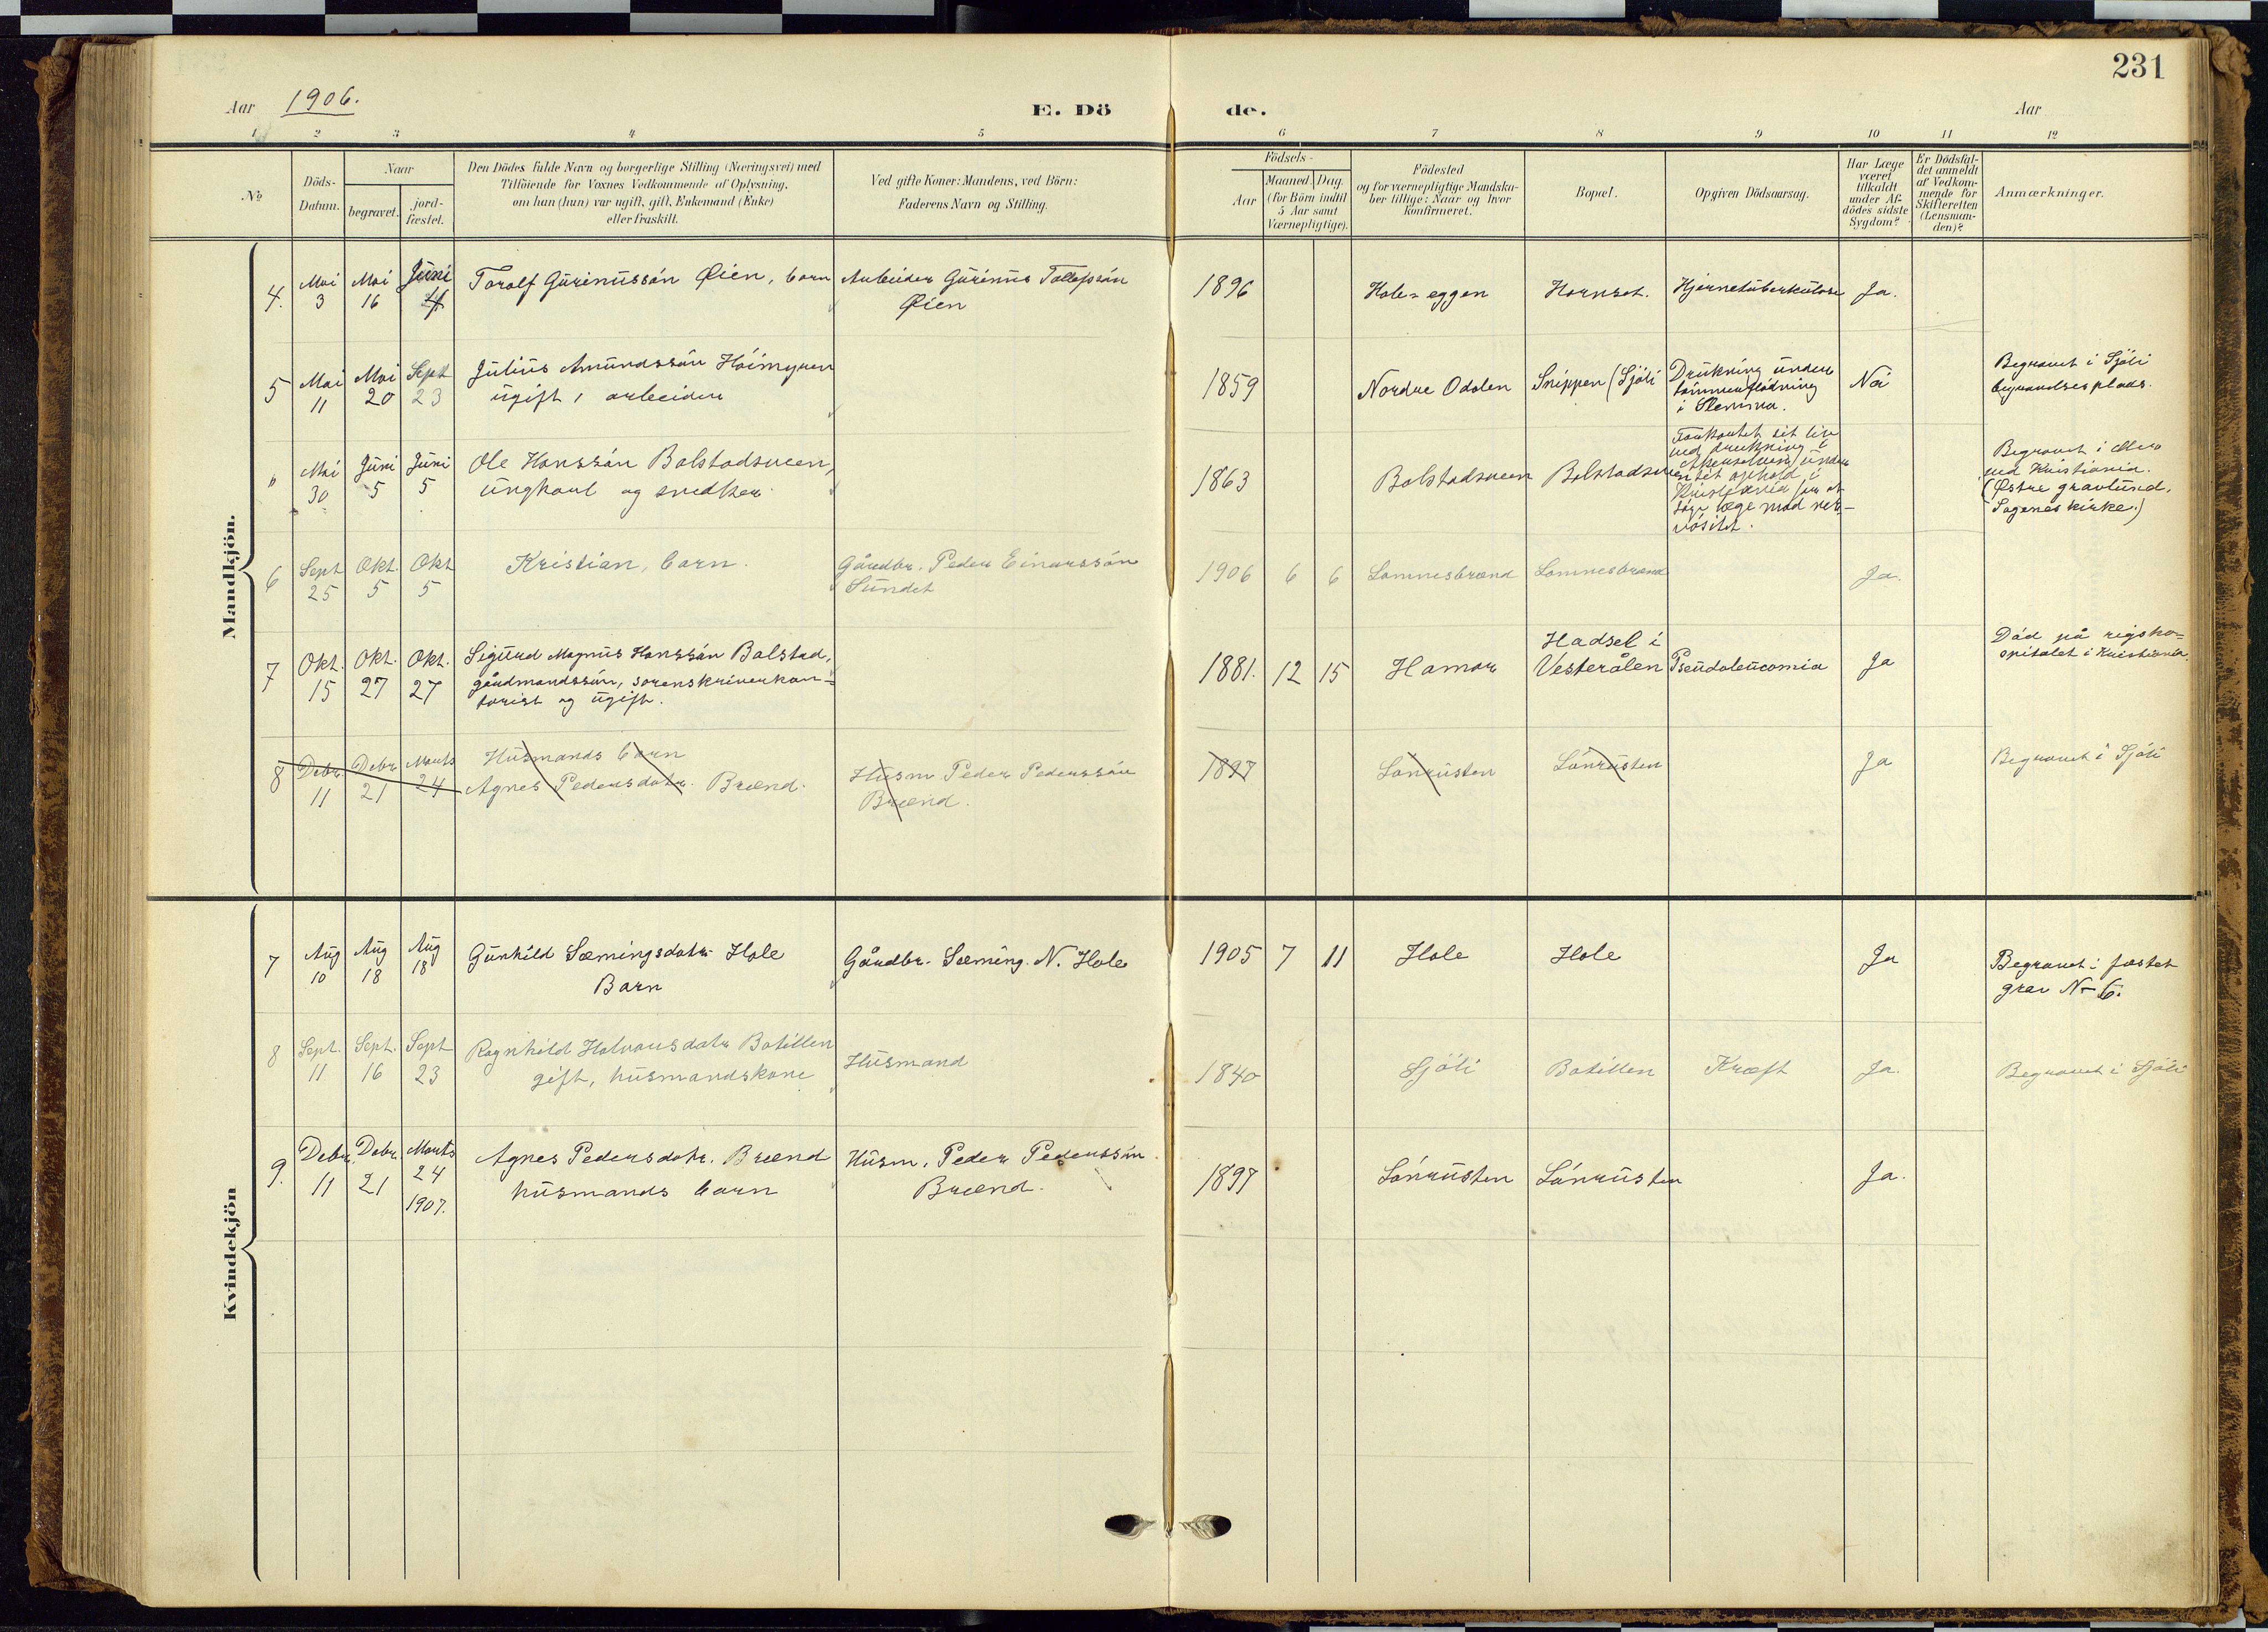 231
Aar 1906.
E. Dö de.
Aar
1 2 3 4 5 6 7 8 9 10 11 12
No
Döds-Datum.
Naar
begravet.
jord-fæstet.
Den Dödes fulde Navn og borgerlige Stilling (Næringsvei) med
Tilföiende for Voxnes Vedkommende af Oplysning,
om han (hun) var ugift, gift, Enkemand (Enke)
eller fraskilt.
Ved gifte Koner: Mandens, ved Börn:
Faderens Navn og Stilling.
Födsels-
Aar
Maaned. Dag.
(for Börn indtil
5 Aar samt
Værnepligtige).
Födested
og for værnepligtige Mandska-
ber tillige: Naar og hvor
konfirmeret.
Bopæl.
Opgiven Dödsaarsag.
Har Læge
været
tilkaldt
under Af-
dödes sidste
Sygdom?
Er Dödsfal-
det anmeldt
af Vedkom-
mende for
Skifteretten
(Lensman-
den)?
Anmærkninger.
Mandkjön.
4. Mai 3 Mai 16 Juni 4 Torolf Gurinussön Øien, barn Arbeider Gurinus Tollefssön Øien 1896 Hole=eggen Hornset. Hjernetuberkulose Ja.
5 Mai 11 Mai 20 Sept 23 Julius Amundssön Höimyren
ugift, arbeider 1859 Nordre Odalen Snippen (Sjöli Drukning under
tömmerflödning
i Flenma. Nei Begravet i Sjöli
begravelsesplads.
" Mai 30 Juni 5 Juni 5 Ole Hanssön Bolstadsveen,
ungkarl og snedker 1863 Bolstadsveen Bolstadsveen Forkortet sit liv
ved drukning i
Akerselven under
et sit ophold i
Kristiania for at
söge læge mod ner-
vösitet. Begravet i Aker
ved Kristiania.
(Østre gravlund,
Sagenes kirke.)
6 Sept 25 Okt. 5 Okt 5 Kristian, barn. Gårdbr. Peder Einarssön
Sundet 1906 6 6 Lomnesbrænd Lomnesbrænd Ja.
7 Okt. 15 Okt. 27 Okt. 27 Sigurd Magnus Hanssön Bolstad,
gårdmandssön, sorenskriverkon=
torist og ugift. 1881. 12 15 Hamar Hadsel i
Vesterålen Pseudoleucomia Ja Död på rigsho=
spitalet i Kristiania.
8 Debr 11 Debr 21 Marts 24 Husmands barn
Agnes Pedersdatr. Brænd. Husm Peder Pederssön
Brænd. 1897 Lönrusten Lönrusten Ja Begravet i Sjöli
Kvindekjön
7 Aug 10 Aug 18 Aug 18 Gunhild Sæmingsdatr Hole
Barn Gårdbr. Sæming N. Hole 1905 7 11 Hole Hole Ja Begravet i fæstet
grav No 6.
8 Sept. 11 Sept. 16 Sept 23 Ragnhild Halvorsdatr Botillen
gift, husmandskone Husmand 1840 Sjöli Botillen Kræft Ja. Begravet i Sjöli
9. Debr. 11 Debr. 21 Marts 24 1907. Agnes Pedersdatr. Brænd
husmands barn Husm. Peder Pederssön
Brænd. 1897 Lönrusten Lönrusten Ja.